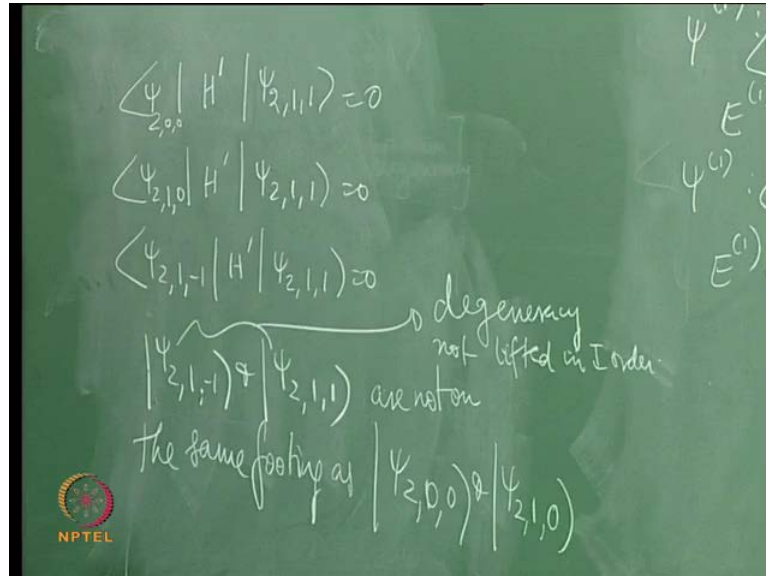 ⟨Ψ2,0,0| H' |Ψ2,1,1⟩=0
⟨Ψ2,1,0| H' |Ψ2,1,1⟩=0
⟨Ψ2,1,-1| H' |Ψ2,1,1⟩=0
degeneracy
not lifted in I order.
|Ψ2,1,-1⟩ & |Ψ2,1,1⟩ are not on
the same footing as |Ψ2,0,0⟩ & |Ψ2,1,0⟩
Ψ(1):
E(1)
Ψ(1):
E(1)
NPTEL